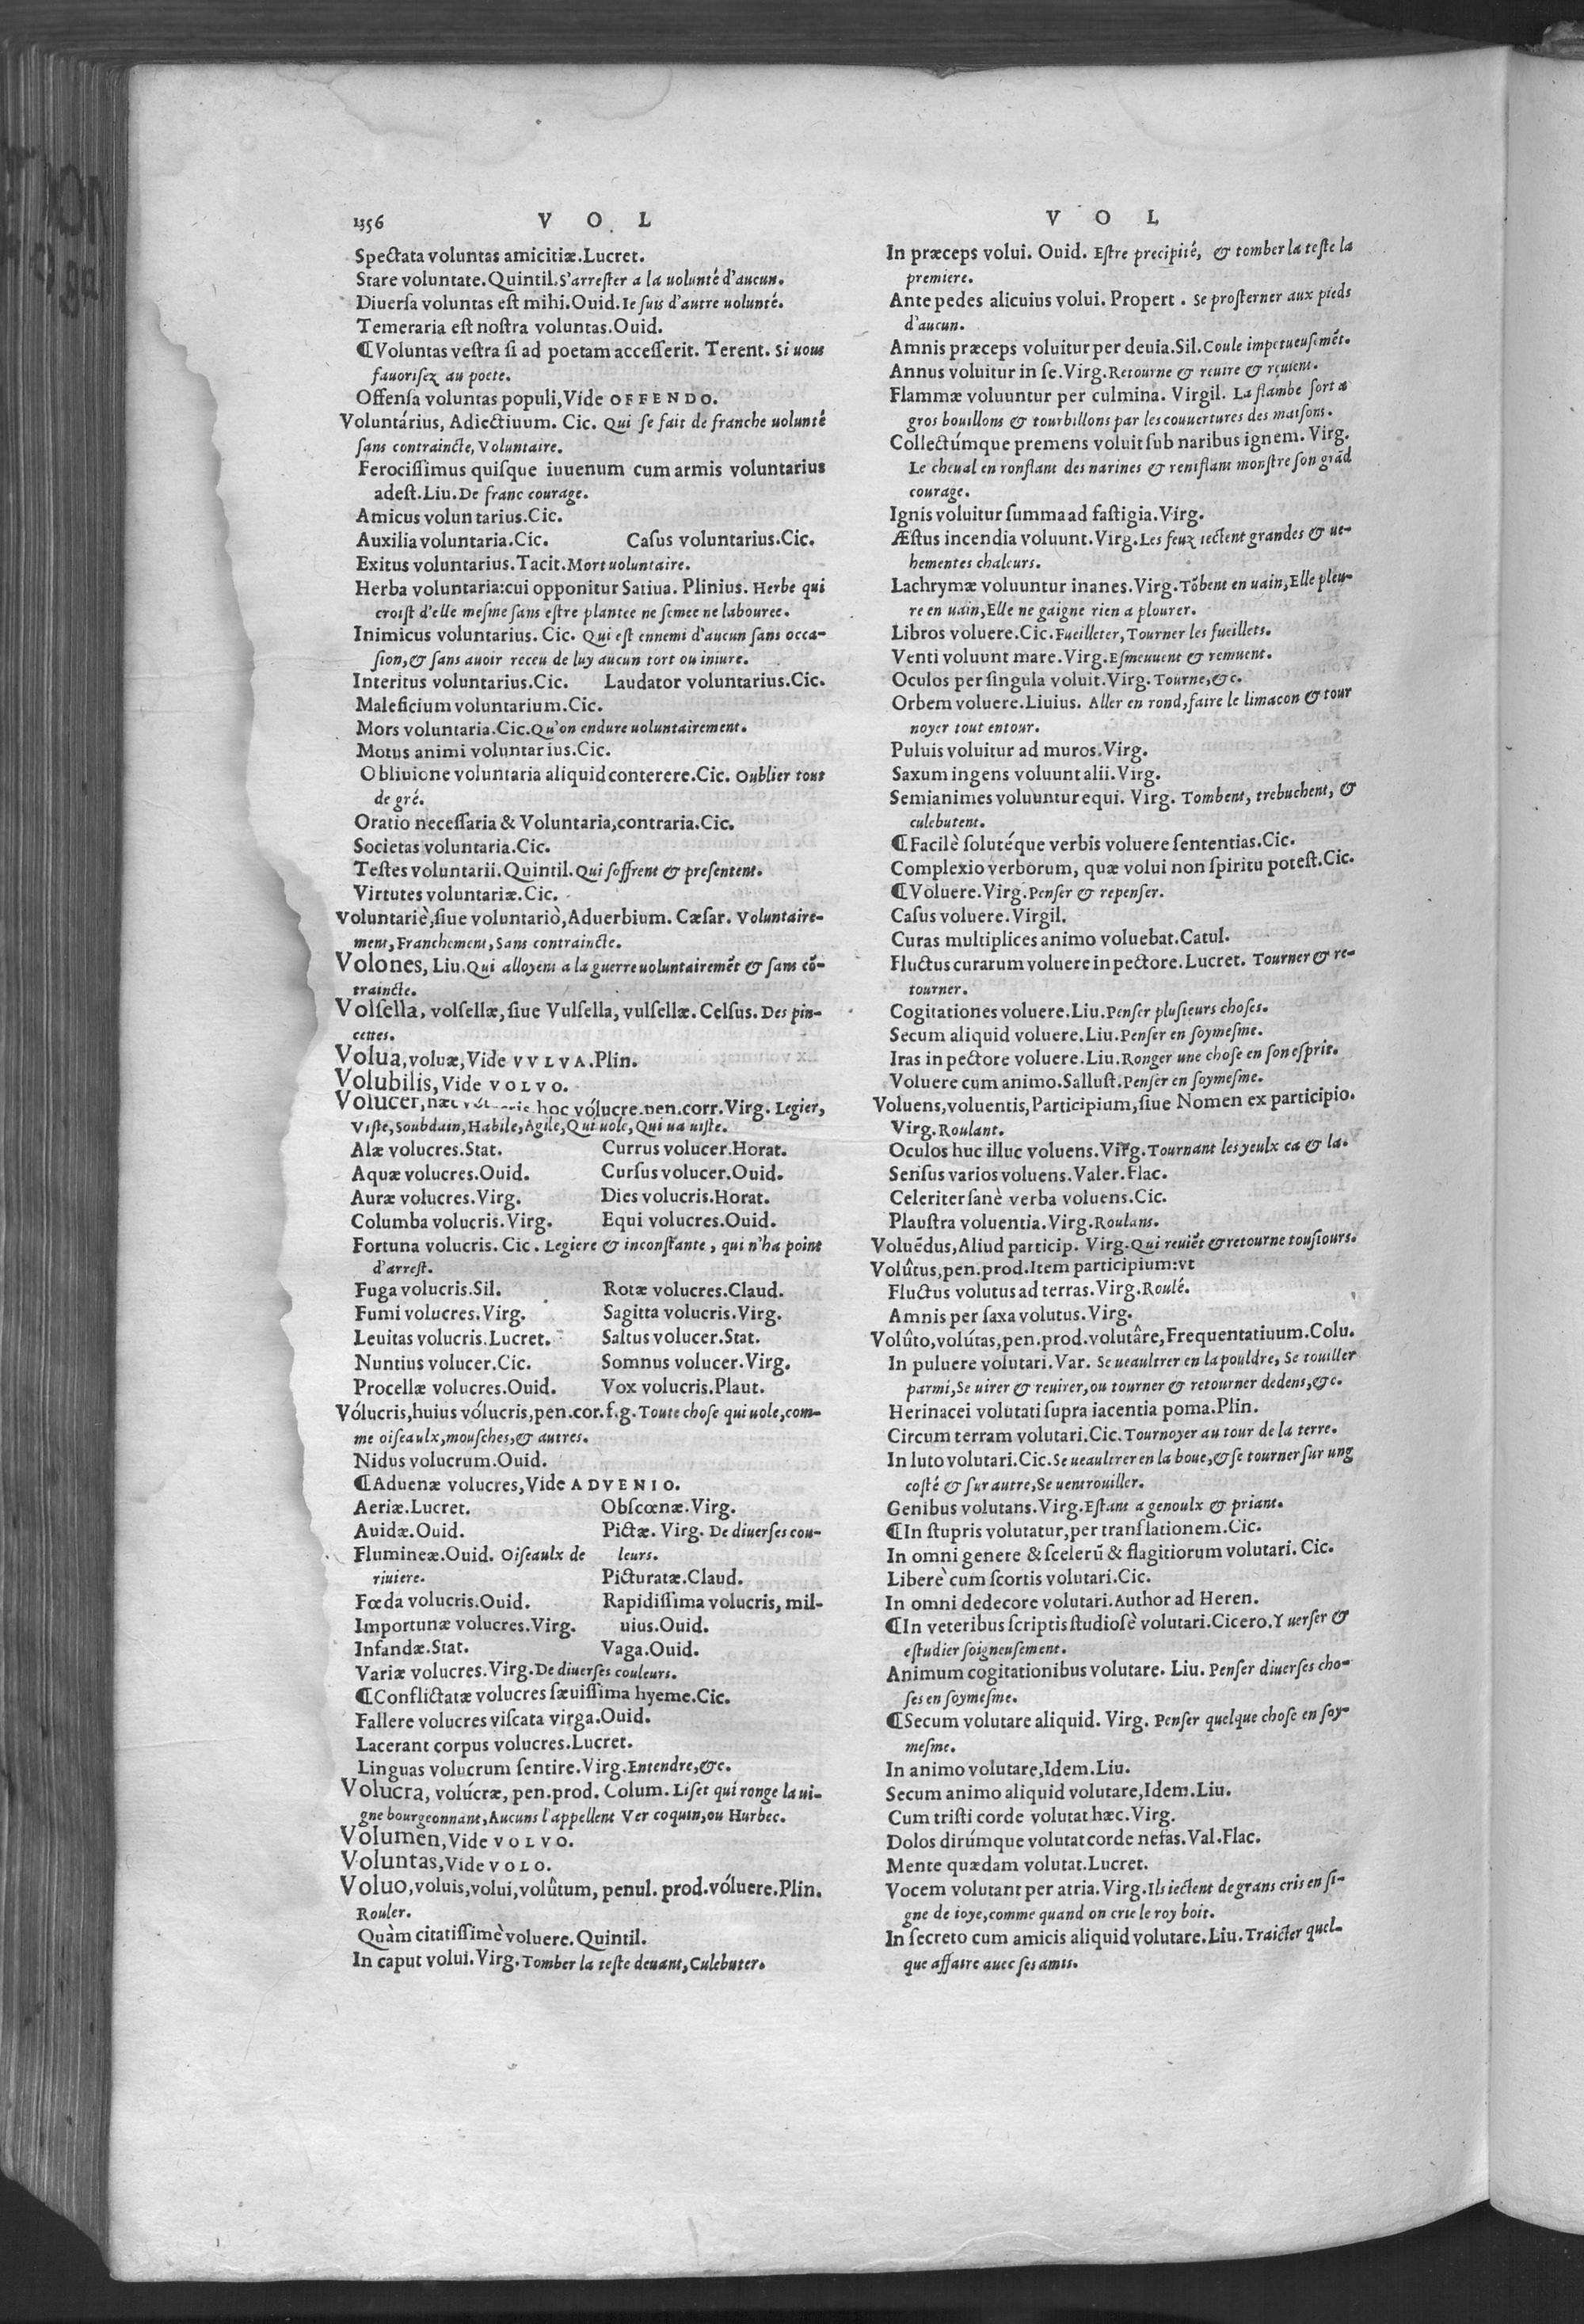 1356 V O L
Spectata voluntas amicitiæ.Lucret.
Stare voluntate.Quintil.S'arrester a la uolunté d'aucun.
Diuersa voluntas est mihi.Ouid.Ie suis d'autre uolunté.
Temeraria est nostra voluntas.Ouid.
¶Voluntas vestra si ad poetam accesserit. Terent. Si uous
fauorisez au poete.
Offensa voluntas populi,Vide OFFENDO.
Voluntárius, Adiectiuum. Cic. Qui se fait de franche uolunté
sans contraincte, Voluntaire.
Ferocissimus quisque iuuenum cum armis voluntarius
adest.Liu.De franc courage.
Amicus voluntarius.Cic.
Auxilia voluntaria.Cic. Casus voluntarius.Cic.
Exitus voluntarius.Tacit.Mort uoluntaire.
Herba voluntaria:cui opponitur Satiua. Plinius. Herbe qui
croist d'elle mesme sans estre plantee ne semee ne labouree.
Inimicus voluntarius. Cic. Qui est ennemi d'aucun sans occa-
sion,& sans auoir receu de luy aucun tort ou iniure.
Interitus voluntarius.Cic. Laudator voluntarius.Cic.
Maleficium voluntarium.Cic.
Mors voluntaria.Cic.Qu'on endure uoluntairement.
Motus animi voluntarius.Cic.
Obliuione voluntaria aliquid conterere.Cic. Oublier tout
de gré.
Oratio necessaria & Voluntaria,contraria.Cic.
Societas voluntaria.Cic.
Testes voluntarii.Quintil.Qui s'offrent & presentent.
Virtutes voluntariæ.Cic.
Voluntariè,siue voluntariò,Aduerbium. Cæsar. Voluntaire-
ment,Franchement,Sans contraincte.
Volones, Liu.Qui alloyent a la guerre uoluntairemẽt & sans cõ-
traincte.
Volsella, volsellæ, siue Vulsella, vulsellæ. Celsus. Des pin-
cettes.
Volua,voluæ,Vide VVLVA.Plin.
Volubilis,Vide VOLVO.
Volucer, hoc vólucre.pen.corr.Virg. Legier,
Viste,Soubdain,Habile,Agile,Qui uole,Qui ua uiste.
Alæ volucres.Stat. Currus volucer.Horat.
Aquæ volucres.Ouid. Cursus volucer.Ouid.
Auræ volucres.Virg. Dies volucris.Horat.
Columba volucris.Virg. Equi volucres.Ouid.
Fortuna volucris. Cic. Legiere & inconstante, qui n'ha point
d'arrest.
Fuga volucris.Sil. Rotæ volucres.Claud.
Fumi volucres.Virg. Sagitta volucris.Virg.
Leuitas volucris.Lucret. Saltus volucer.Stat.
Nuntius volucer.Cic. Somnus volucer.Virg.
Procellæ volucres.Ouid. Vox volucris.Plaut.
Vólucris,huius vólucris,pen.cor.f.g.Toute chose qui uole,com-
me oiseaulx,mousches,& autres.
Nidus volucrum.Ouid.
¶Aduenæ volucres,Vide ADVENIO.
Aeriæ.Lucret. Obscœnæ.Virg.
Auidæ.Ouid. Pictæ. Virg. De diuerses cou-
Flumineæ.Ouid. Oiseaulx de leurs.
riuiere. Picturatæ.Claud.
Fœda volucris.Ouid. Rapidissima volucris, mil-
Importunæ volucres.Virg. uius.Ouid.
Infandæ.Stat. Vaga.Ouid.
Variæ volucres.Virg.De diuerses couleurs.
¶Conflictatæ volucres sæuissima hyeme.Cic.
Fallere volucres viscata virga.Ouid.
Lacerant corpus volucres.Lucret.
Linguas volucrum sentire.Virg.Entendre,&c.
Volucra, volúcræ, pen.prod. Colum. Liset qui ronge la ui-
gne bourgeonnant,Aucuns l'appellent Ver coquin,ou Hurbec.
Volumen,Vide VOLVO.
Voluntas,Vide VOLO.
Voluo,voluis,volui,volûtum, penul. prod.vóluere.Plin.
Rouler.
Quàm citatissimè voluere.Quintil.
In caput volui.Virg.Tomber la teste deuant,Culebuter.
V O L
In præceps volui. Ouid. Estre precipité, & tomber la teste la
premiere.
Ante pedes alicuius volui. Propert. Se prosterner aux pieds
d'aucun.
Amnis præceps voluitur per deuia.Sil.Coule impetueusemẽt.
Annus voluitur in se.Virg.Retourne & reuire & reuient.
Flammæ voluuntur per culmina. Virgil. La flambe sort a
gros bouillons & tourbillons par les couuertures des maisons.
Collectúmque premens voluit sub naribus ignem. Virg.
Le cheual en ronflant des narines & reniflant monstre son grãd
courage.
Ignis voluitur summa ad fastigia.Virg.
Æstus incendia voluunt.Virg.Les feuz iectent grandes & ue-
hementes chaleurs.
Lachrymæ voluuntur inanes.Virg.Tõbent en uain,Elle pleu-
re en uain,Elle ne gaigne rien a plourer.
Libros voluere.Cic.Fueilleter,Tourner les fueillets.
Venti voluunt mare.Virg.Esmeuuent & remuent.
Oculos per singula voluit.Virg.Tourne,&c.
Orbem voluere.Liuius. Aller en rond,faire le limacon & tour
noyer tout entour.
Puluis voluitur ad muros.Virg.
Saxum ingens voluunt alii.Virg.
Semianimes voluuntur equi. Virg. Tombent, trebuchent, &
culebutent.
¶Facilè solutéque verbis voluere sententias.Cic.
Complexio verborum, quæ volui non spiritu potest.Cic.
¶Voluere.Virg.Penser & repenser.
Casus voluere.Virgil.
Curas multiplices animo voluebat.Catul.
Fluctus curarum voluere in pectore.Lucret. Tourner & re-
tourner.
Cogitationes voluere.Liu.Penser plusieurs choses.
Secum aliquid voluere.Liu.Penser en soymesme.
Iras in pectore voluere.Liu.Ronger une chose en son esprit.
Voluere cum animo.Sallust.Penser en soymesme.
Voluens,voluentis,Participium,siue Nomen ex participio.
Virg.Roulant.
Oculos huc illuc voluens.Virg.Tournant les yeulx ca & la.
Sensus varios voluens.Valer.Flac.
Celeriter sanè verba voluens.Cic.
Plaustra voluentia.Virg.Roulans.
Voluẽdus,Aliud particip. Virg.Qui reuiẽt & retourne tousiours.
Volûtus,pen.prod.Item participium:vt
Fluctus volutus ad terras.Virg.Roulé.
Amnis per saxa volutus.Virg.
Volûto,volútas,pen.prod.volutâre,Frequentatiuum.Colu.
In puluere volutari.Var. Se ueaultrer en la pouldre, Se touiller
parmi,Se uirer & reuirer,ou tourner & retourner dedens,&c.
Herinacei volutati supra iacentia poma.Plin.
Circum terram volutari.Cic.Tournoyer au tour de la terre.
In luto volutari.Cic.Se ueaultrer en la boue,& se tourner sur ung
costé & sur autre,Se uentrouiller.
Genibus volutans.Virg.Estant a genoulx & priant.
¶In stupris volutatur,per translationem.Cic.
In omni genere & scelerũ & flagitiorum volutari. Cic.
Liberè cum scortis volutari.Cic.
In omni dedecore volutari.Author ad Heren.
¶In veteribus scriptis studiosè volutari.Cicero.Y uerser &
estudier soigneusement.
Animum cogitationibus volutare. Liu. Penser diuerses cho-
ses en soymesme.
¶Secum volutare aliquid. Virg. Penser quelque chose en soy-
mesme.
In animo volutare,Idem.Liu.
Secum animo aliquid volutare,Idem.Liu.
Cum tristi corde volutat hæc.Virg.
Dolos dirúmque volutat corde nefas.Val.Flac.
Mente quædam volutat.Lucret.
Vocem volutant per atria.Virg.Ils iectent de grans cris en si-
gne de ioye,comme quand on crie le roy boit.
In secreto cum amicis aliquid volutare.Liu.Traicter quel-
que affaire auec ses amis.